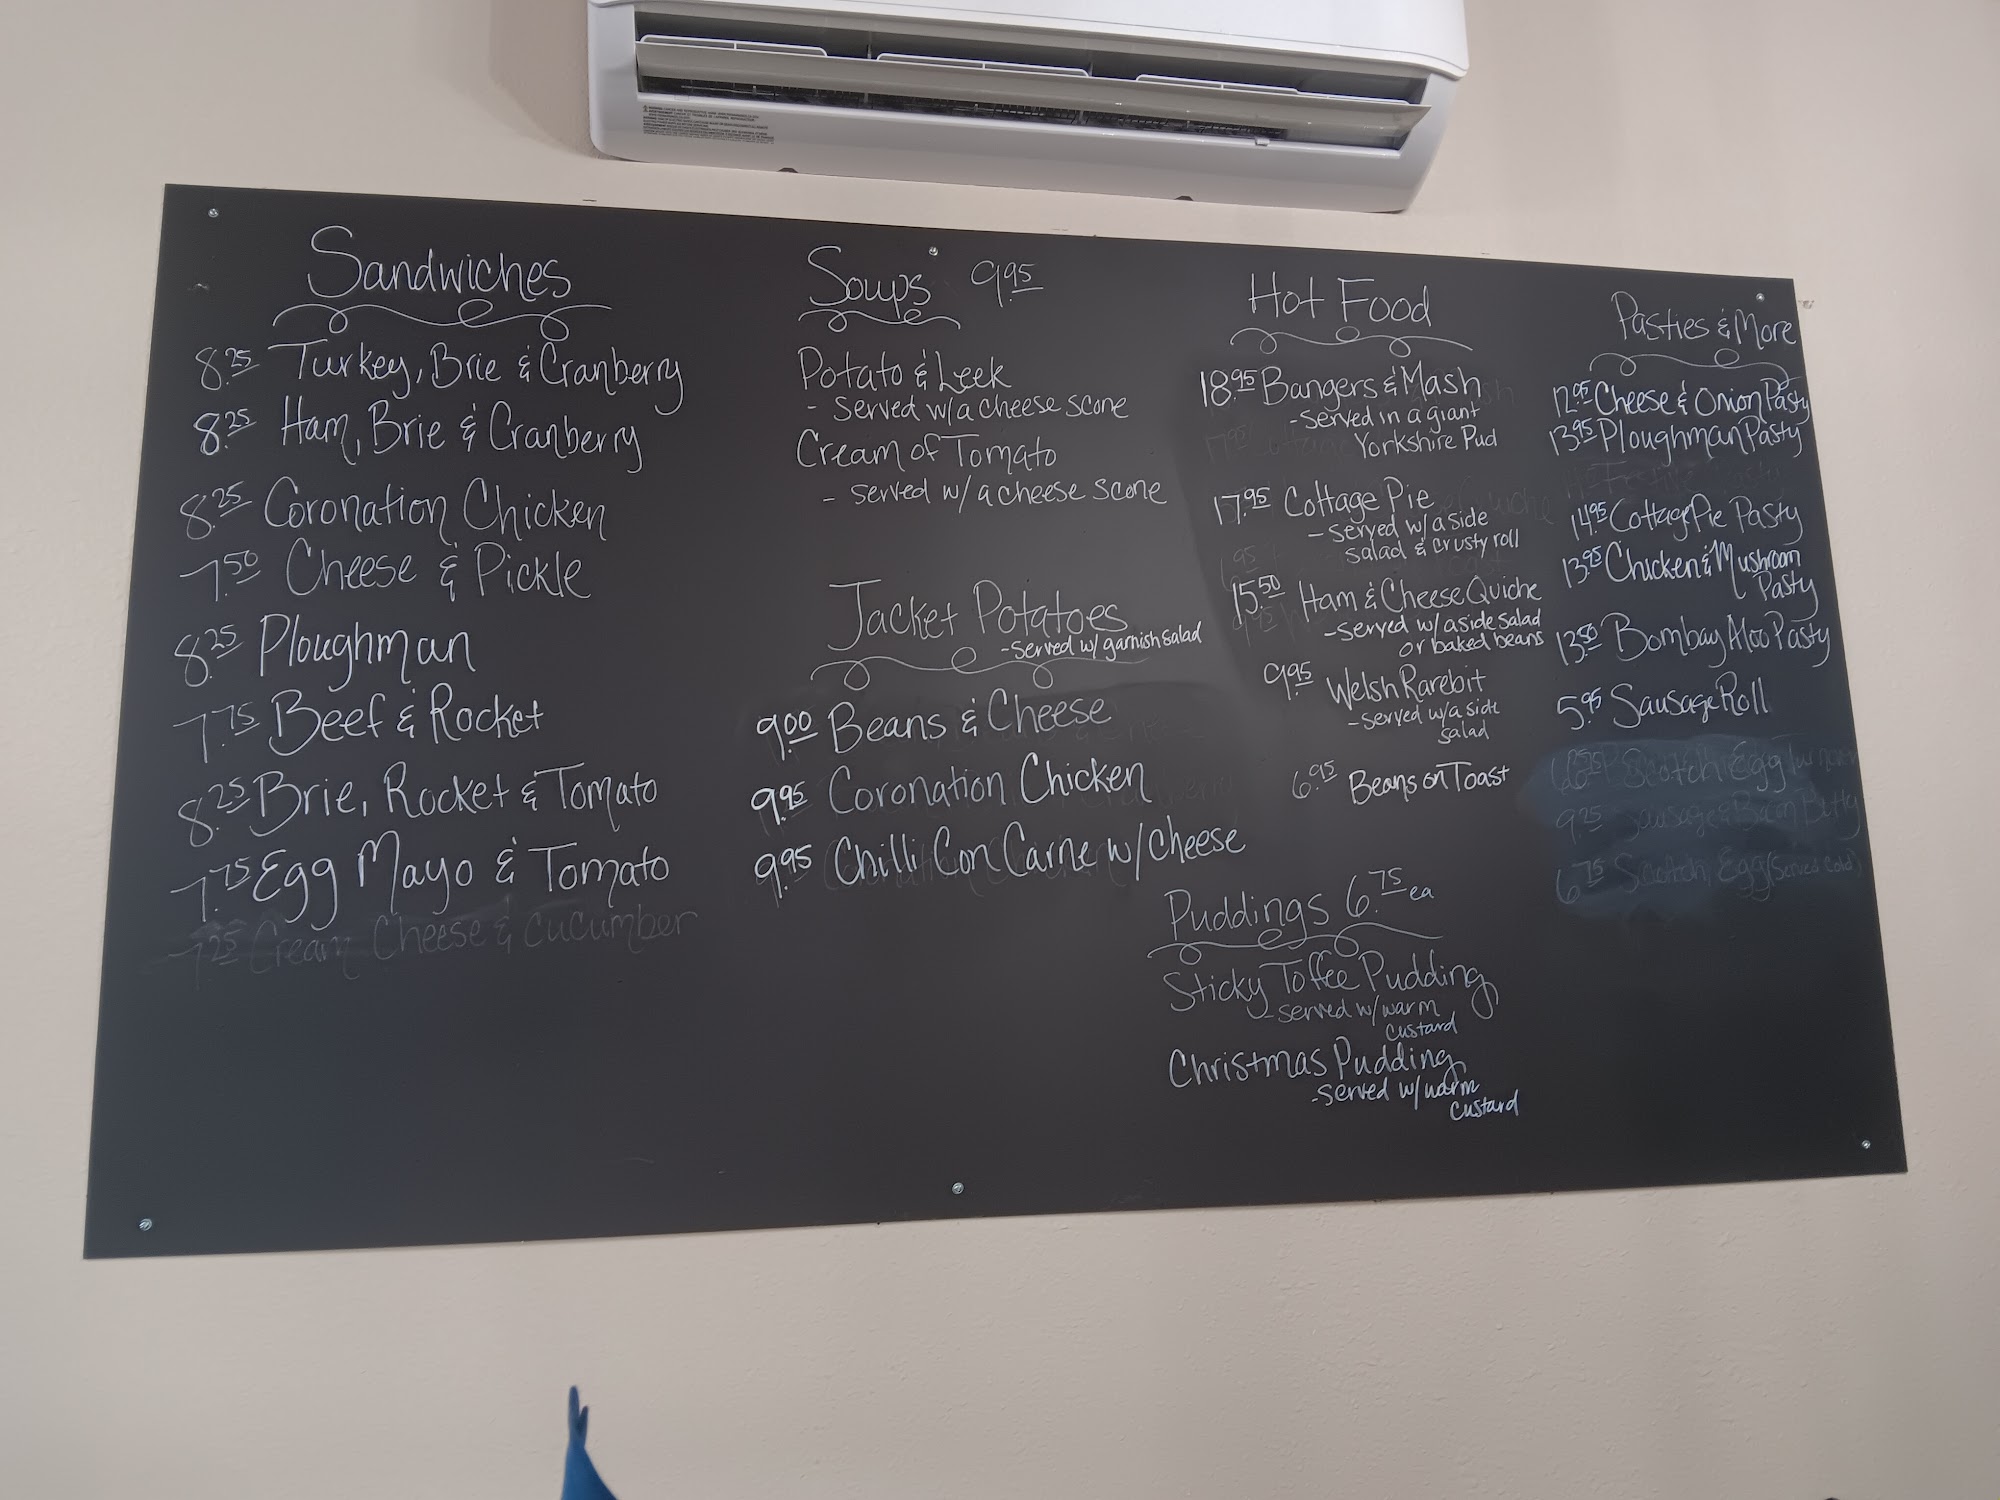 Sandwiches
8.25 Turkey, Brie & Cranberry
8.25 Ham, Brie & Cranberry
8.25 Coronation Chicken
7.50 Cheese & Pickle
8.25 Ploughman
7.75 Beef & Rocket
8.25 Brie, Rocket & Tomato
7.75 Egg Mayo & Tomato
7.25 Cream Cheese & cucumber
Soups 9.95
Potato & Leek
- Served w/a cheese scone
Cream of Tomato
- served w/ a cheese scone
Jacket Potatoes
-served w/ garnish salad
9.00 Beans & Cheese
9.95 Coronation Chicken
9.95 Chilli Con Carne w/ Cheese
Hot Food
18.95 Bangers & Mash
-served in a giant
Yorkshire Pud
17.95 Cottage Pie
-served w/ a side
salad & crusty roll
15.50 Ham & Cheese Quiche
-served w/ a side salad
or baked beans
9.95 Welsh Rarebit
-served w/a side
salad
6.95 Beans on Toast
Puddings 6.75 ea
Sticky Toffee Pudding
-served w/warm
custard
Christmas Pudding
-served w/warm
custard
Pasties & More
12.95 Cheese & Onion Pasty
13.95 Ploughman Pasty
14.95 Cottage Pie Pasty
13.95 Chicken & Mushroom
Pasty
13.50 Bombay Aloo Pasty
5.95 Sausage Roll
Scotch Egg
9.25 Sausage & Bacon Butty
6.75 Scotch Egg (served cold)